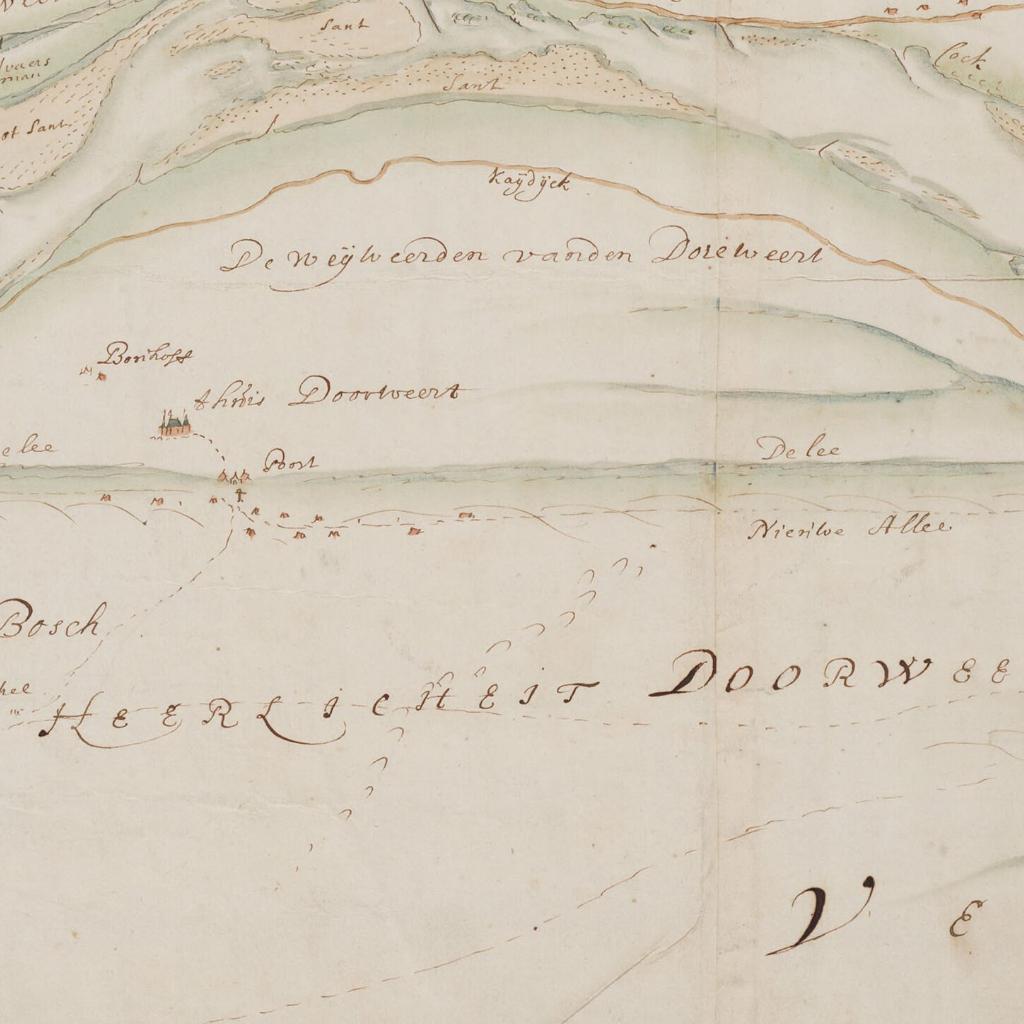 Sant
Cock
Sant
ot Sant
Kaÿdÿck
De weÿweerden vanden Doreweert
Bouhoff
thuis Doorweert
e lee
Poort
De lee
Nieuwe Allee
Bosch
HEERLICHEIT DOORWEE
V E